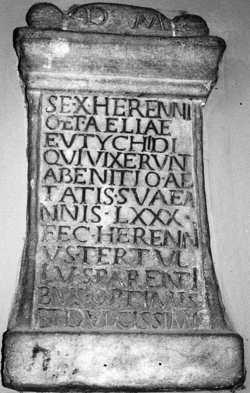 D M
SEX·HERENNI
O·ET·AELIAE
EVTYCHIDI
QVI VIXERVNT
AB ENITIO·AE
TATIS·SVAE A
NNIS·LXXX·
FEC·HERENN
VS·TERTVL
LVS·PARENTI
BVS·OPTIMIS
ET DVLCISSIMI